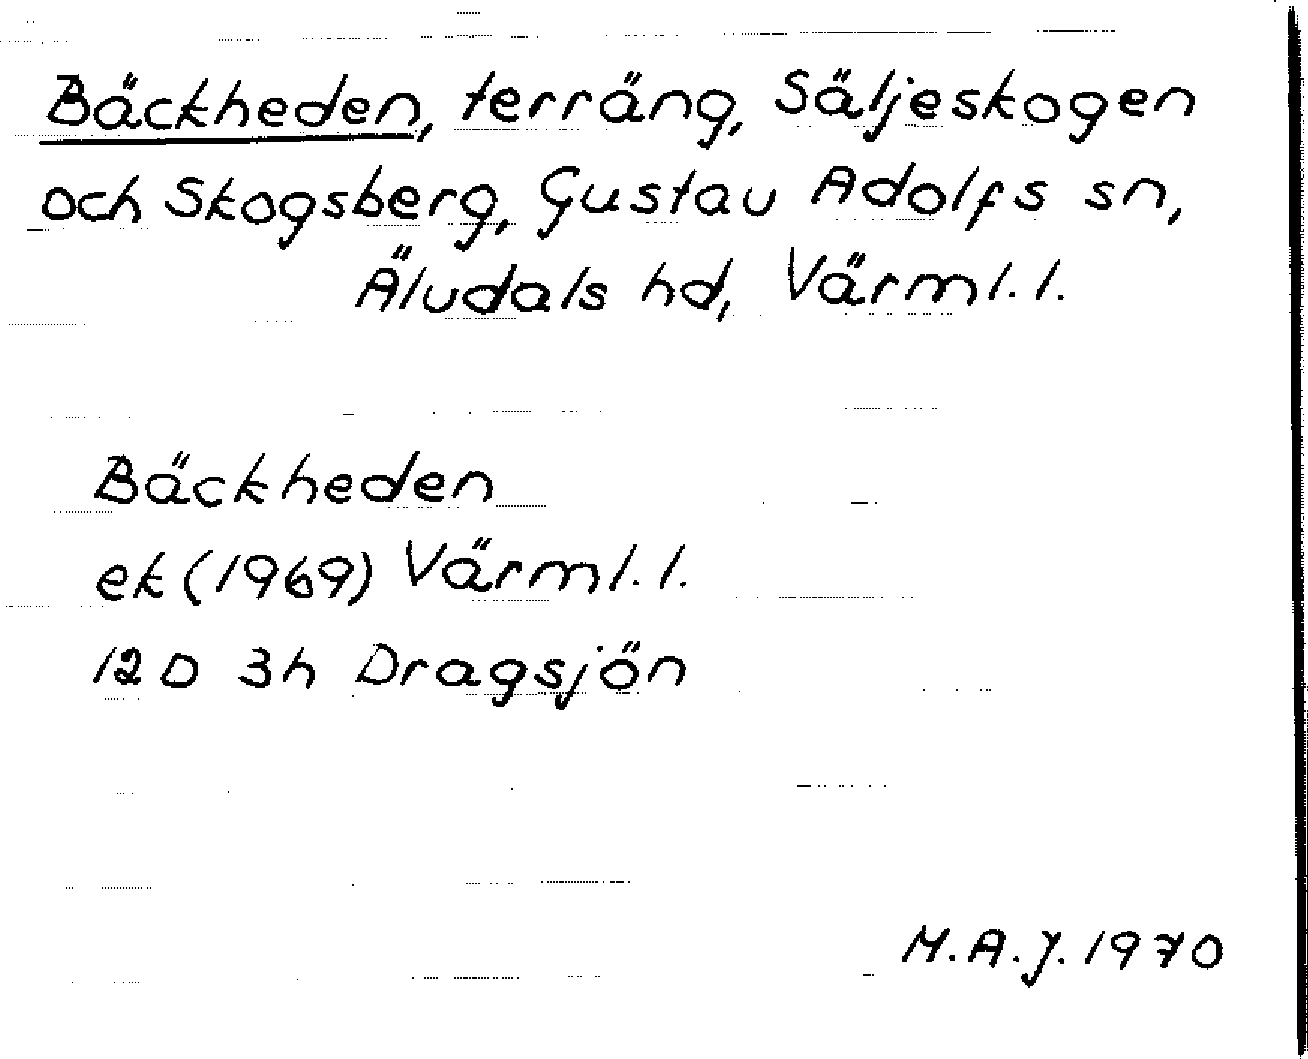 Bäckheden, terräng, Säljeskogen
och Skogsberg, Gustav Adolfs sn,
Älvdals hd, Värml. l.
Bäckheden
ek (1969) Värml. l.
12 D 3h Dragsjön
M.A.J. 1970